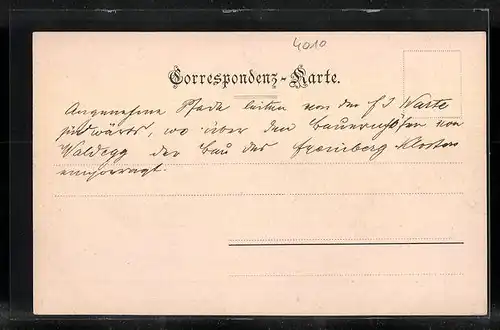 4010
Correspondenz-Karte.
Angenehme Pfade leiten von der Warte
südwärts, wo über den Bauernhöfen von
Waldegg der Bau des Freinberg-Klosters
emporragt.